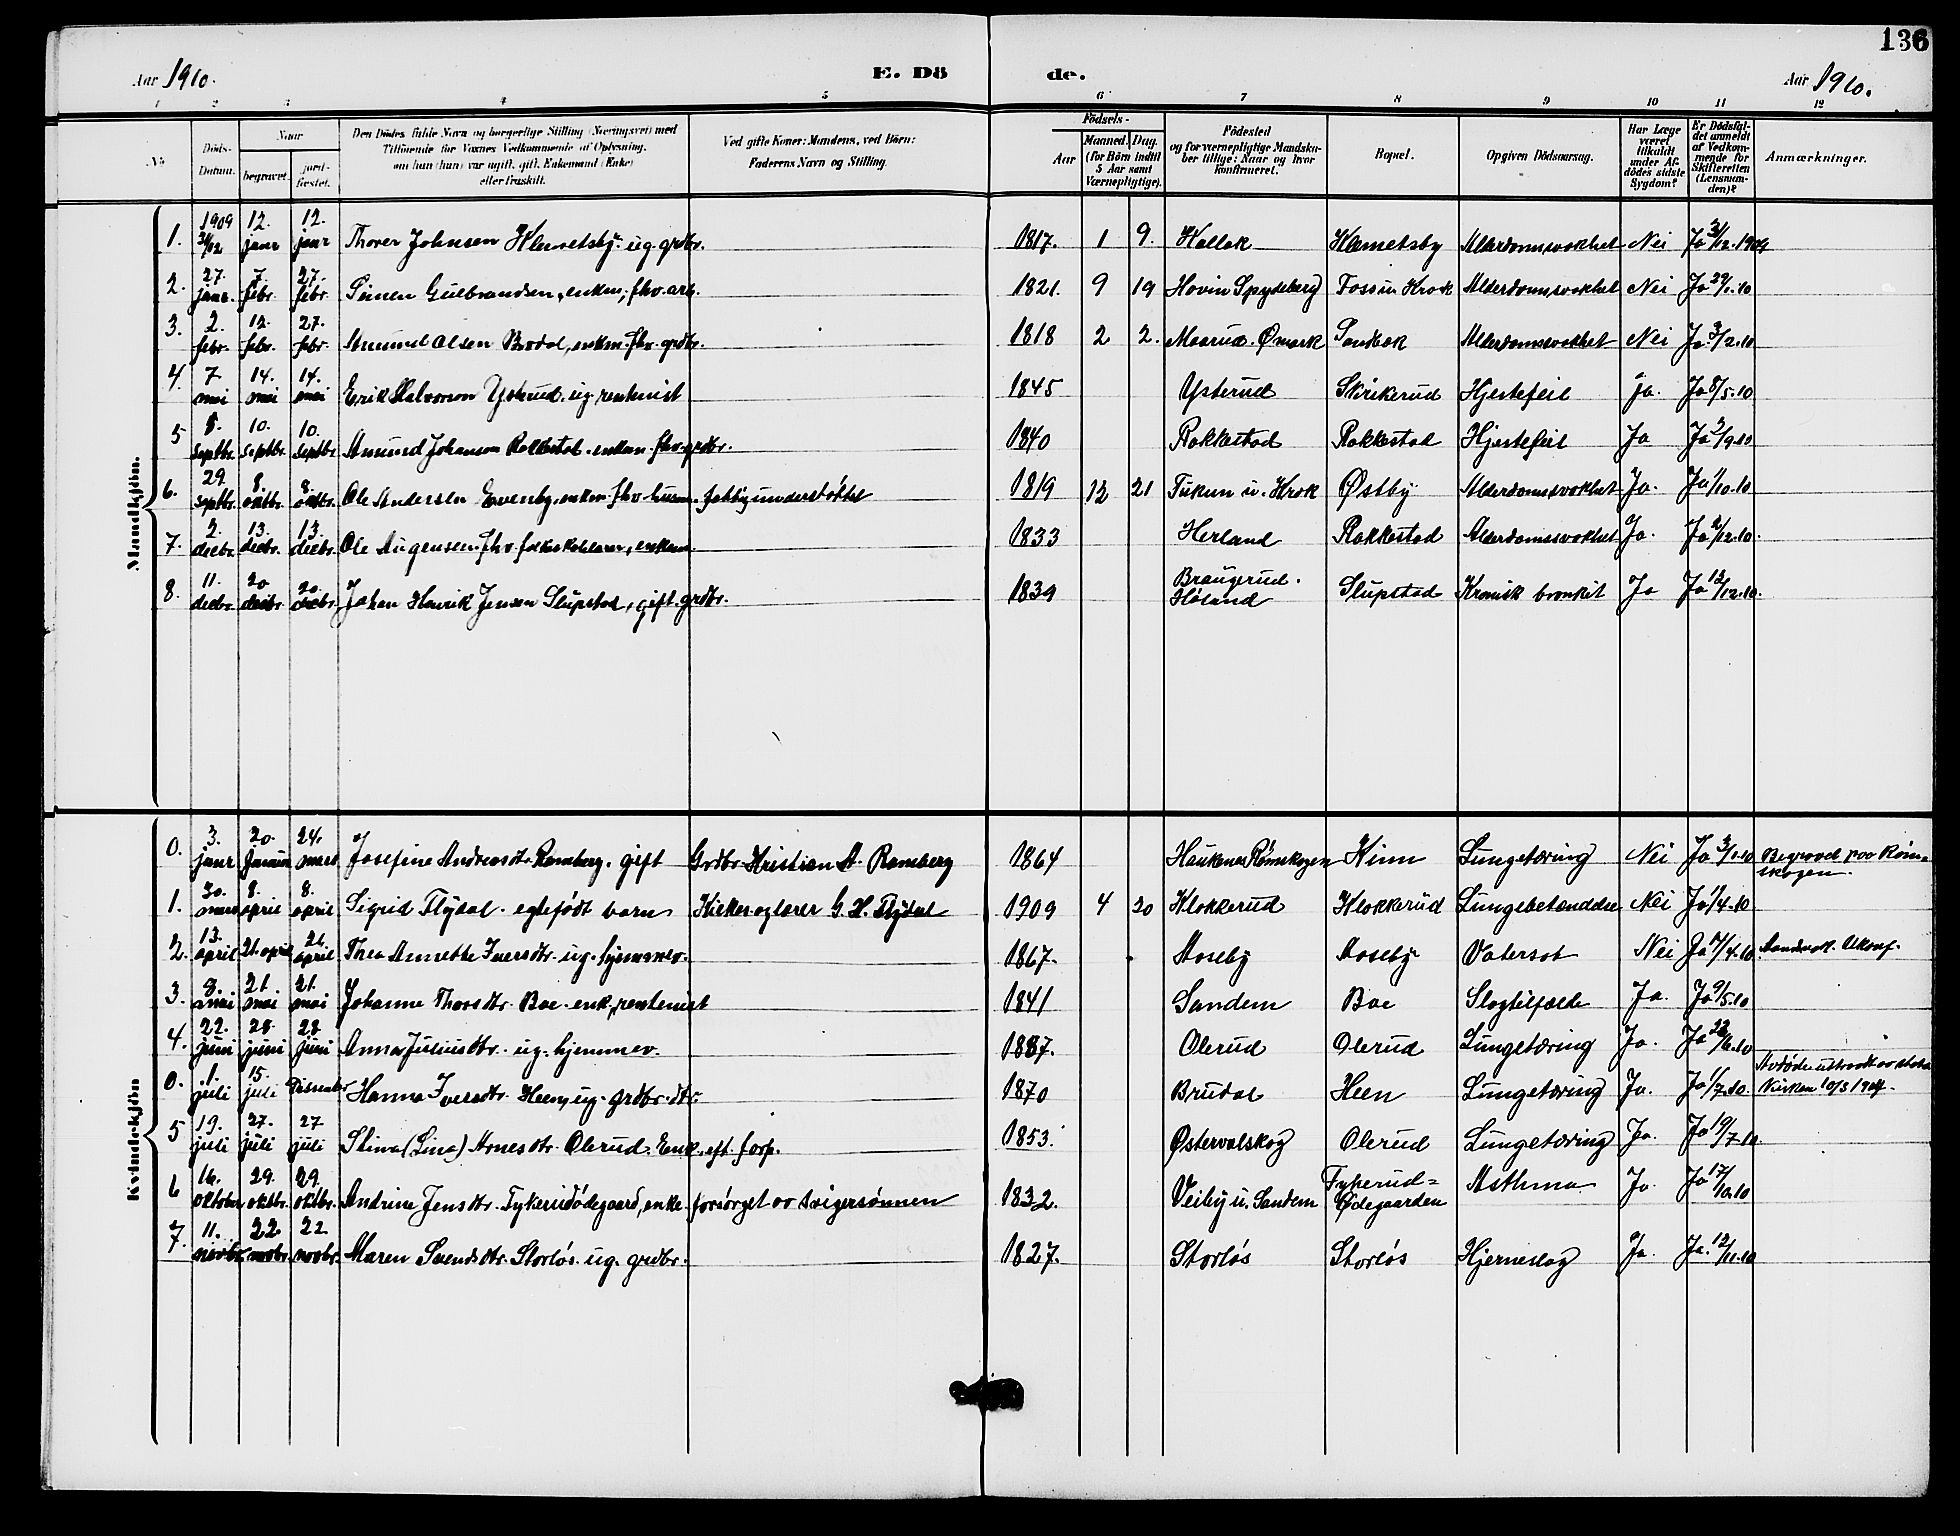 136
Aar 1910. E. Dö de. Aar 1910.
1 2 3 4 5 6 7 8 9 10 11 12
No
Döds-Datum.
Naar
begravet.
jord-fæstet.
Den Dödes fulde Navn og borgerlige Stilling (Næringsvei) med
Tilföiende for Voxnes Vedkommende af Oplysning,
om han (hun) var ugift, gift, Enkemand (Enke)
eller fraskilt.
Ved gifte Koner: Mandens, ved Börn:
Faderens Navn og Stilling.
Födsels-
Aar
Maaned. Dag.
(for Börn indtil
5 Aar samt
Værnepligtige).
Födested
og for værnepligtige Mandska-
ber tillige: Naar og hvor
konfirmeret.
Bopæl.
Opgiven Dödsaarsag.
Har Læge
været
tilkaldt
under Af-
dödes sidste
Sygdom?
Er Dödsfal-
det anmeldt
af Vedkom-
mende for
Skifteretten
(Lensman-
den)?
Anmærkninger.
Mandkjön.
1. 1909 31/12 12. janr 12. janr Thorer Johnsen Klemetsby. ug. grdbr. 1817. 1 9. Kollek Klemetsby Alderdomssvakhet Nei Ja 31/12.1909
2. 27. janr. 7. febr. 27. febr. Simen Gulbrandsen, enkem, fhv. arb. 1821. 9 19 Hovin Spydeberg Foss u. Krok Alderdomssvakhet Nei Ja 29/1.10
3. 2. febr. 12. febr. 27. febr. Amund Olsen Brodal, enkm. fhv. grdbr. 1818 2 2. Maarud. Ømark Sandbæk Alderdomssvakhet Nei Ja 3/2.10
4. 7 mai 14. mai 14. mai Erik Halvorsen Ysterud. ug. rentenist 1845 Ysterud Skrikerud Hjertefeil Ja. Ja 8/5.10
5 septbr. 10. septbr. 10. septbr Amund Johansen Rakkestad. enkem. fhv. grdbr. 1840 Rakkestad Rakkestad Hjertefeil Ja Ja /9.10
6. 29 septbr. 8. oktbr. 8. oktbr. Ole Andersen Evenby, enkm. fhv. husm. fattigunderstøttet 1819 12 21 u. Krok Østby Alderdomssvakhet Ja. Ja 1/10.10
7. 2. decbr. 13. decbr. 13. decbr. Ole Augensen fhv. folkeskolelærer, enkem. 1833 Herland Rakkestad Alderdomssvakhet Ja. Ja 2/12.10.
8. 11. decbr. 20 decbr. 20. decbr. Johan Henrik Jensen Slupstad, gift. grdbr. 1839 Braugerud. Høland Slupstad Kronisk bronkit Ja Ja 12/12.10.
Kvindekjön
0. 3. janr 20. januar 24. mars Josefine Andreasdtr. Ramberg. gift Grdbr. Kristian A. Ramberg 1864 Haukenes Rømskogen Kinn Lungetæring Nei Ja 3/1.10 Begravet paa Røm-
skogen.
1. 30. mars 8. april 8. april Sigrid Flydal. egtefødt barn Kirkesanger G. H. Flydal 1909 4 20 Klokkerud Klokkerud Lungebetændelse Nei Ja 1/4.10
2. 13. april 21. april 21. april Thea Annette Iversdtr. ug. hjemmev. 1867. Aaseby Aaseby Vatersot Nei Ja 14/4.10 Aandsvak. Ukonf.
3. 8. mai 21. mai 21. mai Johanne Thorsdtr. Boe. enk, rentenist 1841 Sandem Boe Slagtilfælde Ja. Ja 9/5.10
4. 22. juni 28. juni 28. juni Anna Juliusdtr. ug. hjemmev. 1887. Olerud Olerud Lungetæring Ja. Ja 23/6.10
0. 1. juli 15. juli Dissenter Hanna Iversdtr. Heen, ug. grdbr. dtr. 1870 Brudal Heen Lungetæring Ja. Ja 1/7.10. Avdøde utraadt av stats
kirken 10/3 1904.
5 19. juli 27. juli 27 juli Stina (Lina) Arnesdtr. Olerud. Enk. eft. forp. 1853. Østervalskog Olerud Lungetæring Ja. Ja 19/7.10
6 16. oktober 29. oktbr. 29. oktbr. Andrine Jensdtr. Tykerudødegaard, enke. forsørget av svigersønnen 1832. Veiby u. Sandem Tykerud=
Ødegaarden Asthma Ja. Ja 17/10.10
7. 11. novbr. 22 novbr. 22 novbr. Maren Svendsdtr. Storløs. ug. grdbr. 1827. Storløs Storløs Hjerneslag Ja. Ja. 12/11.10